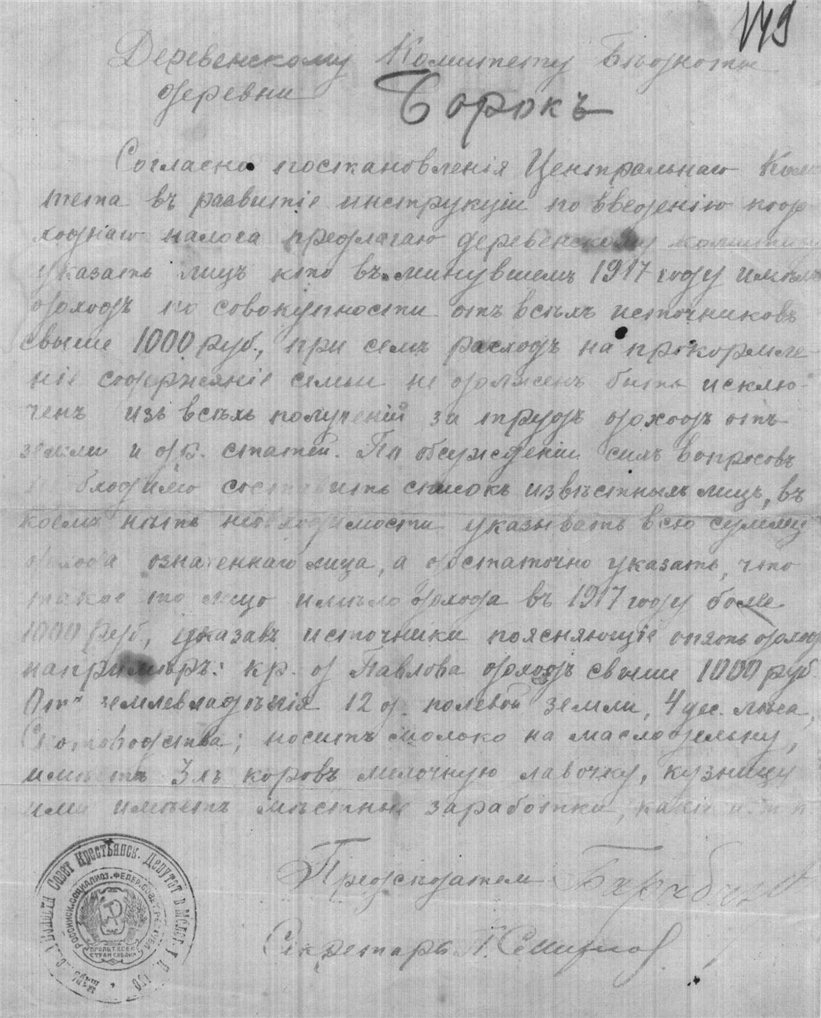 149
Деревенскому Комитету Бѣдноты
деревни Борокъ
Согласно постановленія Центральнаго Коми
тета въ развитіе инструкціи по введенію подо
ходнаго налога предлагаю деревенскому комитету
указать лицъ кто въ минувшемъ 1917 году имѣлъ
доходъ по совокупности отъ всѣхъ источниковъ
свыше 1000 руб., при семъ расходъ на прокормле-
ніе содержаніе семьи не долженъ быть исклю-
ченъ изъ всѣхъ полученій за трудъ доходъ отъ
земли и др. статей. По обсужденіи сихъ вопросовъ
необходимо составить списокъ извѣстныхъ лицъ, въ
коемъ нѣтъ необходимости указывать всю сумму
дохода означеннаго лица, а достаточно указать, что
такое то лицо имѣло дохода въ 1917 году более
1000 руб., указавъ источники поясняющіе опять доход
напримѣръ: кр. д Павлова доходъ свыше 1000 руб
Отъ землевладѣнія 12 д. полевой земли, 4 дес. лѣса,
Скотоводства; носитъ молоко на маслодельну,
имѣетъ 3хъ коровъ мелочную лавочку, кузницу
или имѣетъ мѣстные заработки, какіе и. т. п.
Председатель
Секретарь Смирнов
Совет Крестьянск. Депутат